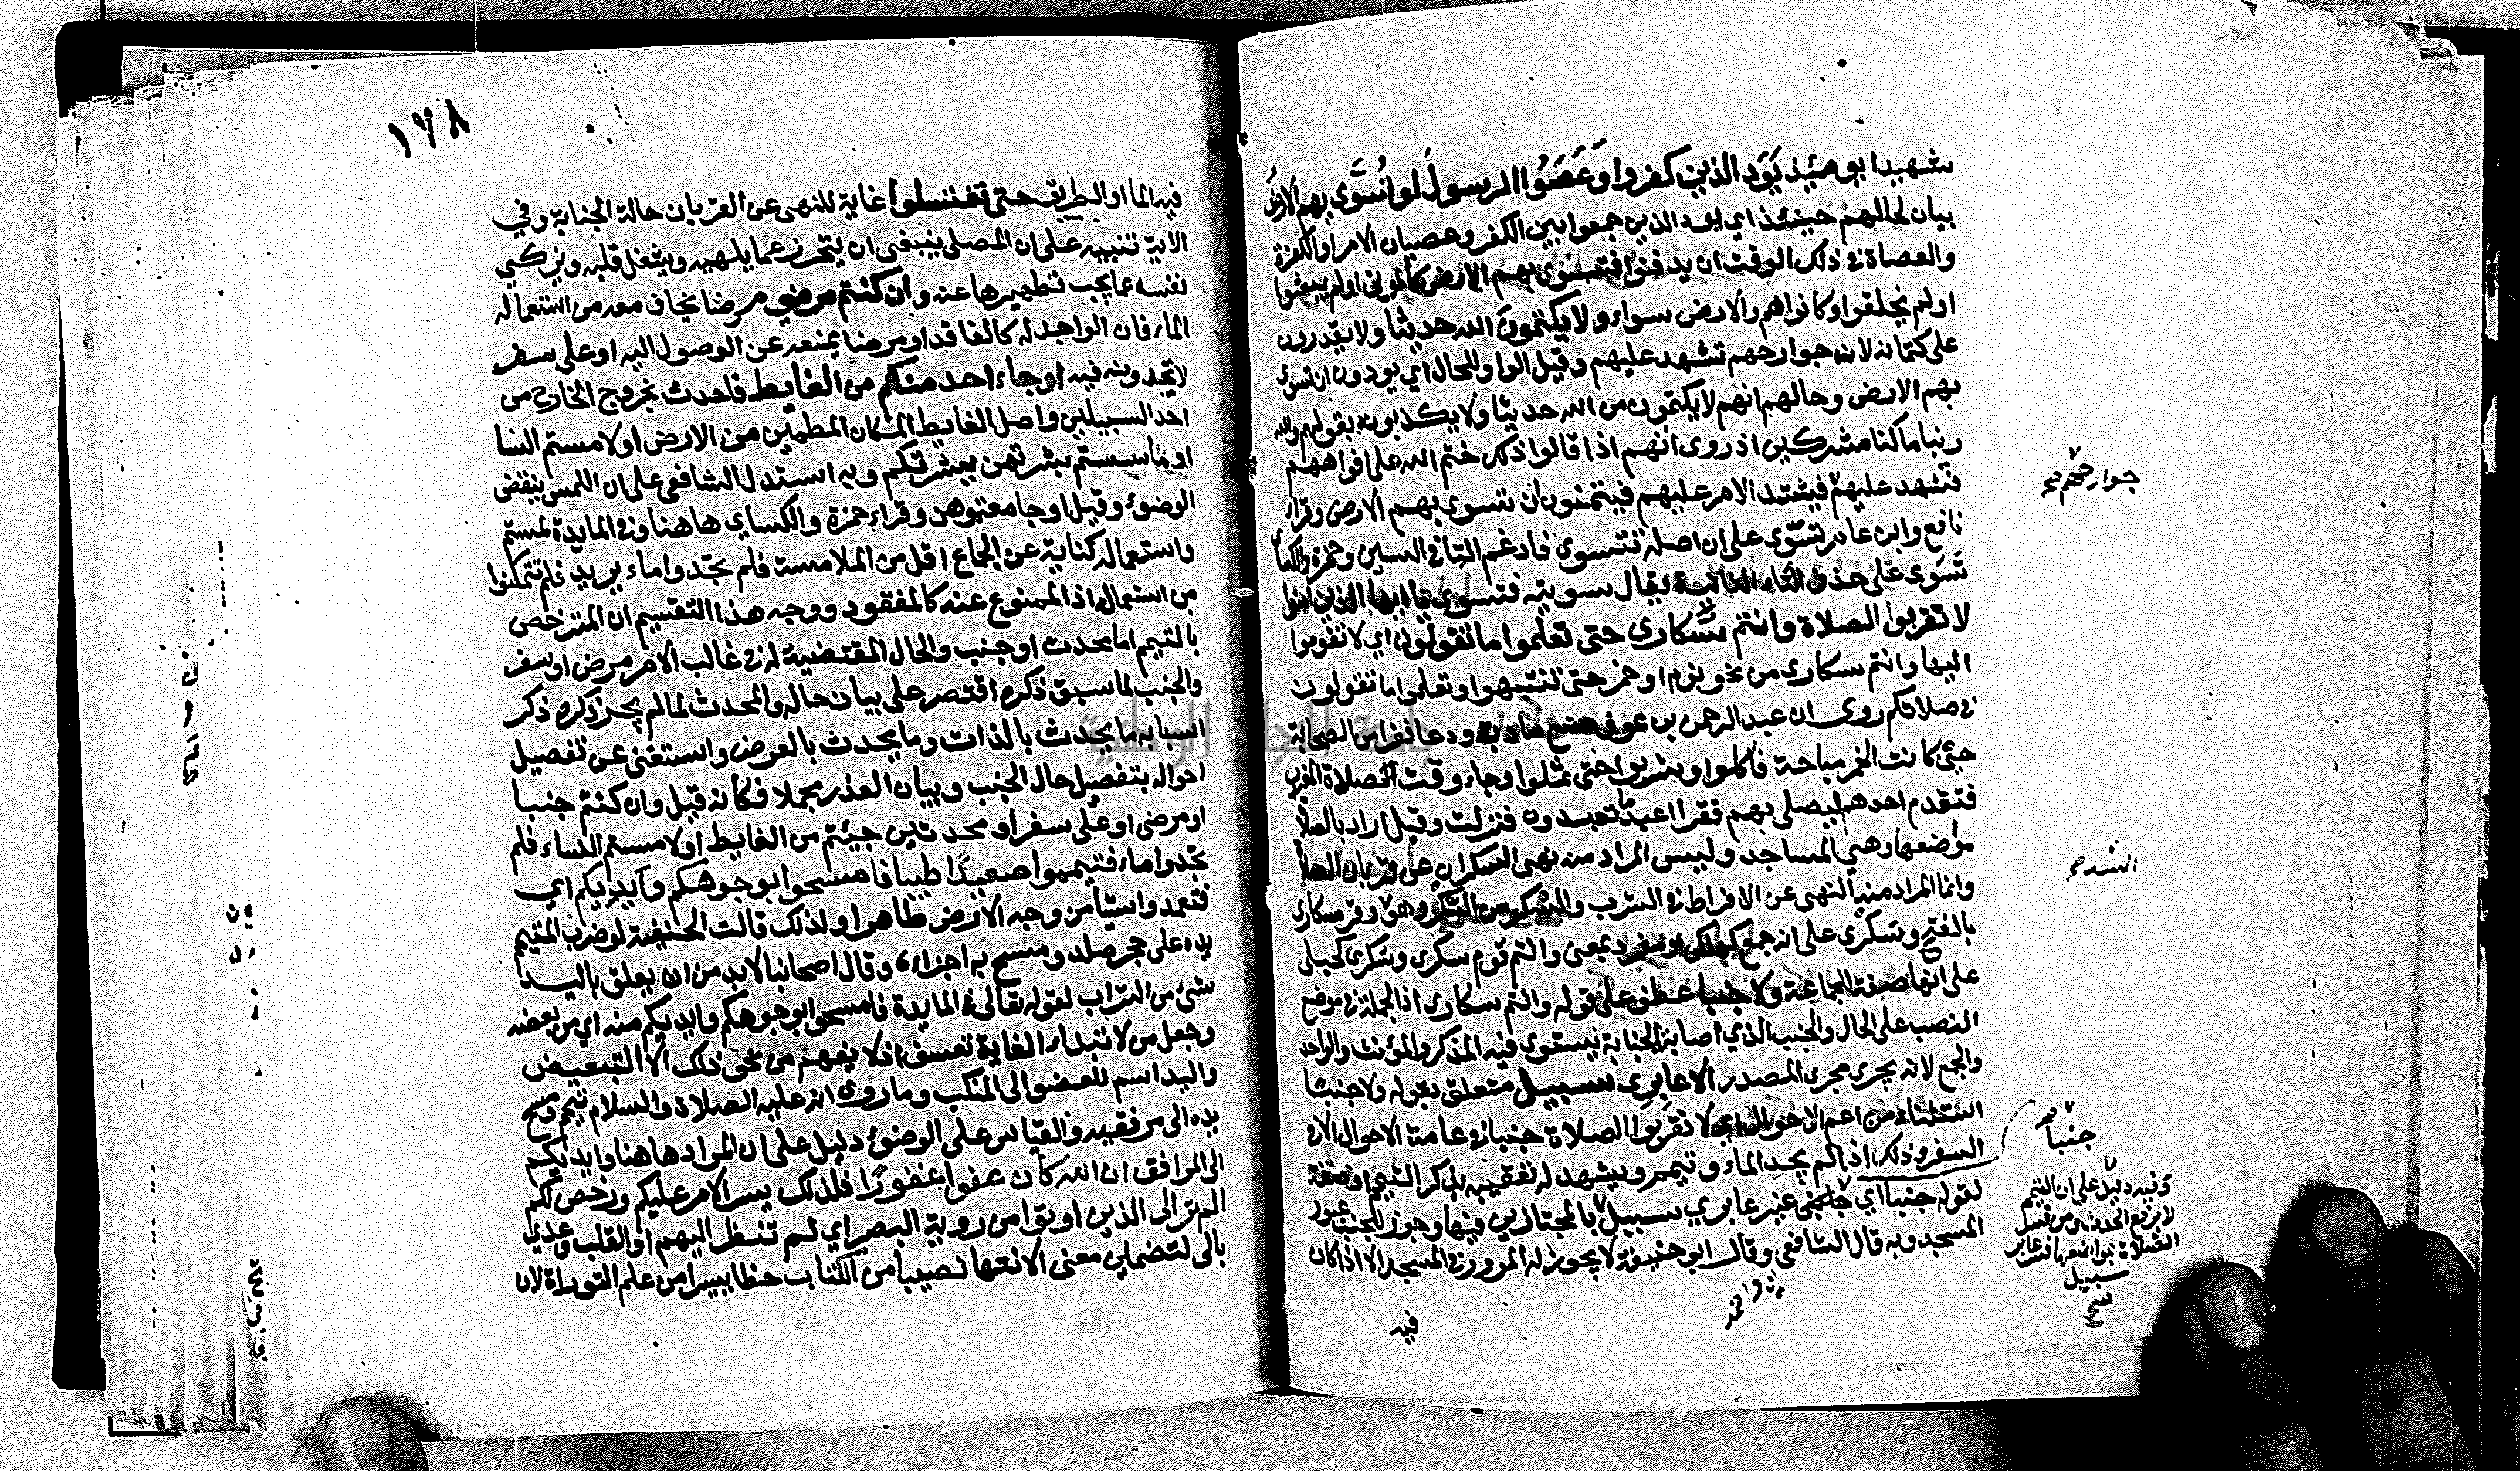 شهيدا يومئذ يَوَد الذين كفروا وَعَصَوُا الرسولَ لو تُسَوَّى بهم الارضُ
بيان لحالهم حينئذ اي يود الذين جمعوا بين الكفر وعصيان الامر او الكفرة
والعصاة في ذلك الوقت ان يدفنوا فتسوى بهم الارض كالموتى او لم يبعثوا
او لم يخلقوا وكانوا هم والارض سواء ولا يكتمون الله حديثا ولا يقدرون
على كتمانه لان جوارحهم تشهد عليهم وقيل الواو للحال اي يودون ان تسوى
بهم الارض وحالهم انهم لا يكتمون من الله حديثا ولا يكذبونه بقولهم والله
ربنا ما كنا مشركين اذ روى انهم اذا قالوا ذلك ختم الله على افواههم
فتشهد عليهم فيشتد الامر عليهم فيتمنون ان تسوى بهم الارض وقرا
نافع وابن عامر تسّوى على ان اصله تتسوى فادغم التا في السين وحمزة والكسائي
تسَوى على حذف التاء الثانية يقال سويته فتسوى يا ايها الذين امنوا
لا تقربوا الصلاة وانتم سُكارى حتى تعلموا ما تقولون اي لا تقوموا
اليها وانتم سكارى من نحو نوم او خمر حتى تنتبهوا وتعلموا ما تقولون
في صلاتكم روى ان عبد الرحمن بن عوف صنع مادبة ودعا نفرا من الصحابة
حين كانت الخمر مباحة فاكلوا وشربوا حتى ثملوا وجاء وقت الصلاة المغرب
فتقدم احدهم ليصلي بهم فقرا اعبد ما تعبدون فنزلت وقيل اراد بالصلاة
مواضعها وهي المساجد وليس المراد منه نهي السكران عن قربان الصلاة
وانما المراد منه النهي عن الافراط في الشرب والسكر من السكر وهو وقرئ سكارى
بالفتح وسَكْرى على انه جمع كهلكى او مفرد بمعنى وانتم قوم سكرى وسُكرى كحبلى
على انها صفة الجماعة ولا جنبا عطف على قوله وانتم سكارى اذ الجملة في موضع
النصب على الحال والجنب الذي اصابة الجنابة يستوي فيه المذكر والمؤنث والواحد
والجمع لانه يجرى مجرى المصدر الا عابرى سبيل متعلق بقوله ولا جنبا
استثناء من اعم الاحوال اي لا تقربوا الصلاة جنبا في عامة الاحوال الا في
السفر وذلك اذا لم يجد الماء وتيمم ويشهد له تعقيبه بذكر التيمم او صفة
لقوله جنبا اي غير عابري سبيل بالمجتازين فيها وجوز للجنب عبور
المسجد وبه قال الشافعي وقال ابو حنيفة لا يجوز له المرور في المسجد الا اذا كان
فيه
جوارحهم صح
الشد
جنبا صح
وفيه دليل على ان التيمم
لا يرفع الحدث ومن فسر
الصلاة بمواضعها فسر عابر
سبيل
صح
١٧٨
فيه الما او الطريق حتى تغتسلوا غاية للنهى عن القربان حالة الجنابة وفي
الاية تنبيه على ان المصلي ينبغي ان يتحرز عما يلهيه ويشغل قلبه ويزكي
نفسه عما يجب تطهيرها عنه وان كنتم مرضي مرضا يخاف معه من استعماله
الماء فان الواجد له كالفاقد او مرضا يمنعه عن الوصول اليه او على سفر
لا تجدونه فيه او جاء احد منكم من الغايط فاحدث بخروج الخارج من
احد السبيلين واصل الغايط المكان المطمئن من الارض او لامستم النسا
او ماسستم بشرتهن ببشرتكم وبه استدل الشافعي على ان اللمس ينقض
الوضوء وقيل او جامعتوهن وقراء حمزة والكساي هاهنا وفي المايدة لمستم
واستعماله كناية عن الجماع اقل من الملامسة فلم تجدوا ماء يريد فلم تتمكنوا
من استعماله اذ الممنوع عنه كالمفقود ووجه هذا التقسيم ان المترخص
بالتيمم اما محدث او جنب والحال المقتضية له في غالب الامر مرض او سفر
والجنب لما سبق ذكره اقتصر على بيان حاله والمحدث لما لم يجر ذكره ذكر
اسبابه ما يحدث بالذات وما يحدث بالعرض واستغنى عن تفصيل
احواله بتفصيل حال الجنب وبيان العذر مجملا فكانه قيل وان كنتم جنبا
او مرضى او على سفر او محدثين جيئتم من الغايط او لامستم النساء فلم
تجدوا ماء فتيمموا صعيدًا طيبا فامسحوا بوجوهكم وايديكم اي
فتعمدوا شيئا من وجه الارض طاهرا ولذلك قالت الحنفية لو ضرب المتيمم
يده على حجر صلد ومسح به اجزاء، وقال اصحابنا لا بد من ان يعلق باليد
شئ من التراب لقوله تعالى في المايدة فامسحوا بوجوهكم وايديكم منه اي من بعضه
وجعل من لابتداء الغاية تعسف اذ لا يفهم من نحو ذلك الا التبعيض
واليد اسم للعضو الى المنكب وما روى انه عليه الصلاة والسلام تيمم ومسح
يده الى مرفقيه والقياس على الوضوء دليل على ان المراد هاهنا وايديكم
الى المرافق ان الله كان عفوا غفورًا فلذلك يسر الامر عليكم ورخص لكم
الم تر الى الذين اوتوا من روية البصر اي لم تنظر اليهم او القلب وعدي
بالى لتضمين معنى الانتها نصيبا من الكتاب حظا يسيرا من علم التوراة لان